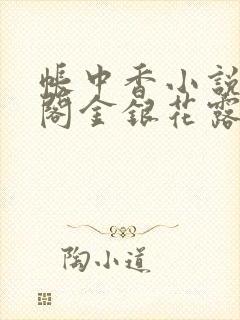 帳中香小說
閣金銀花露
陶小道